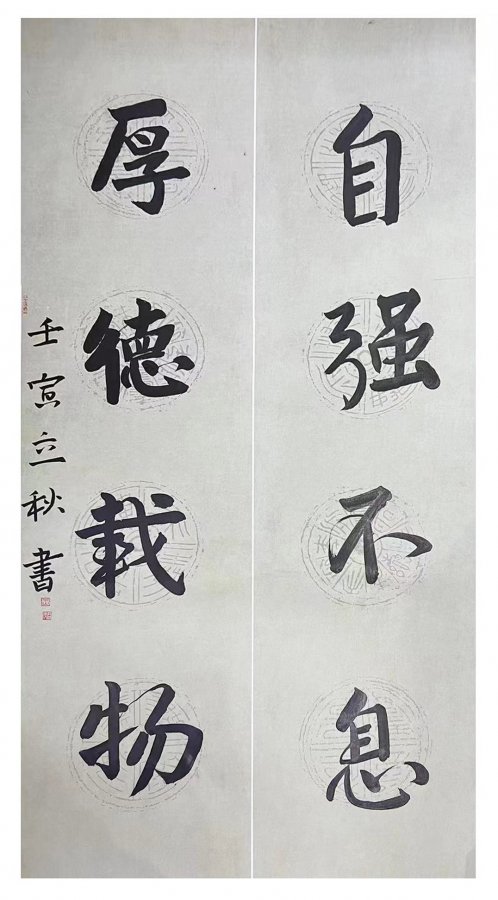 自强不息
厚德载物
壬寅立秋书